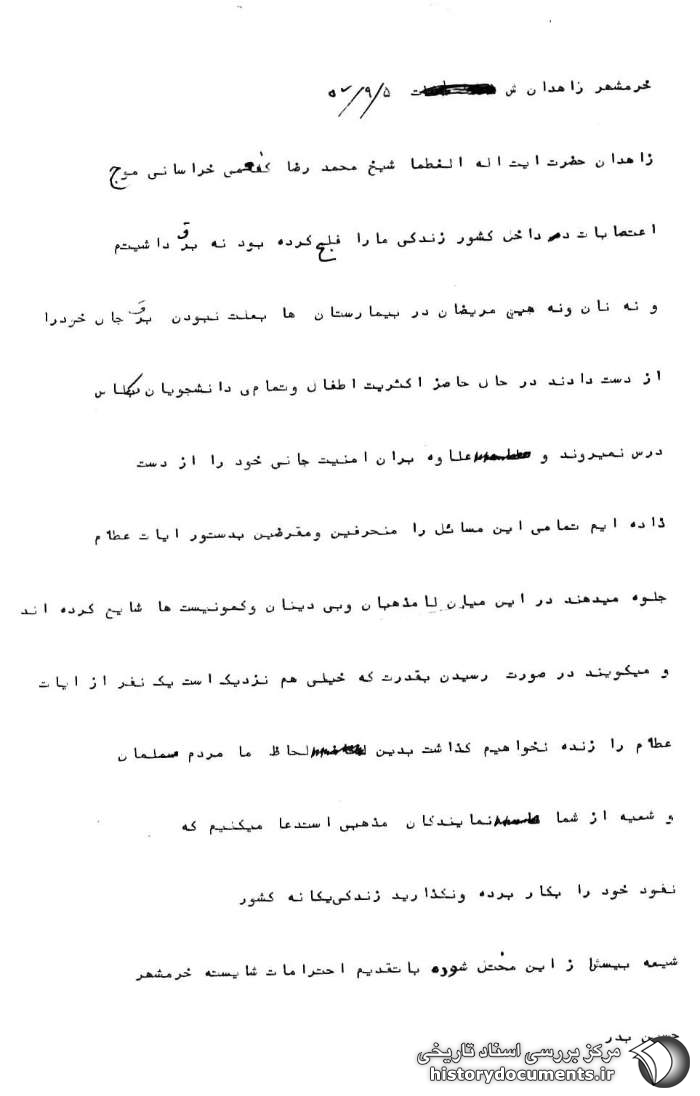 خرمشهر زاهدان ش ت ۵/۹/۵۷
زاهدان حضرت ایت اله الغطما شیخ محمد رضا کفعمی خراسانی موج
اعتصابات در داخل کشور زندکی مارا فلج کرده بود نه برق داشیتم
و نه نان ونه هیچ مریضان در بیمارستان ها بعلت نبودن برق جان خودرا
از دست دادند در حال حاضر اکثریت اطفال وتمامی دانشجویان بکلاس
درس نمیروند و علاوه بران امنیت جانی خود را از دست
داده ایم تمامی این مسائل را منحرفین ومقرضین بدستور ایات عظام
جلوه میدهند در این میان لامذهبان وبی دینان وکمونیست ها شایع کرده اند
و میکویند در صورت رسیدن بقدرت که خیلی هم نزدیک است یک نفر از ایات
عظام را زنده نخواهیم کذاشت بدین لحاظ ما مردم مسلمان
و شعیه از شما نمایندکان مذهبی استدعا میکنیم که
نفود خود را بکار برده ونکذارید زندکی یکانه کشور
شیعه بیستر از این مختل شوده با تقدیم احترامات شایسته خرمشهر
حسین بدر
مرکز بررسی اسناد تاریخی
historydocuments.ir